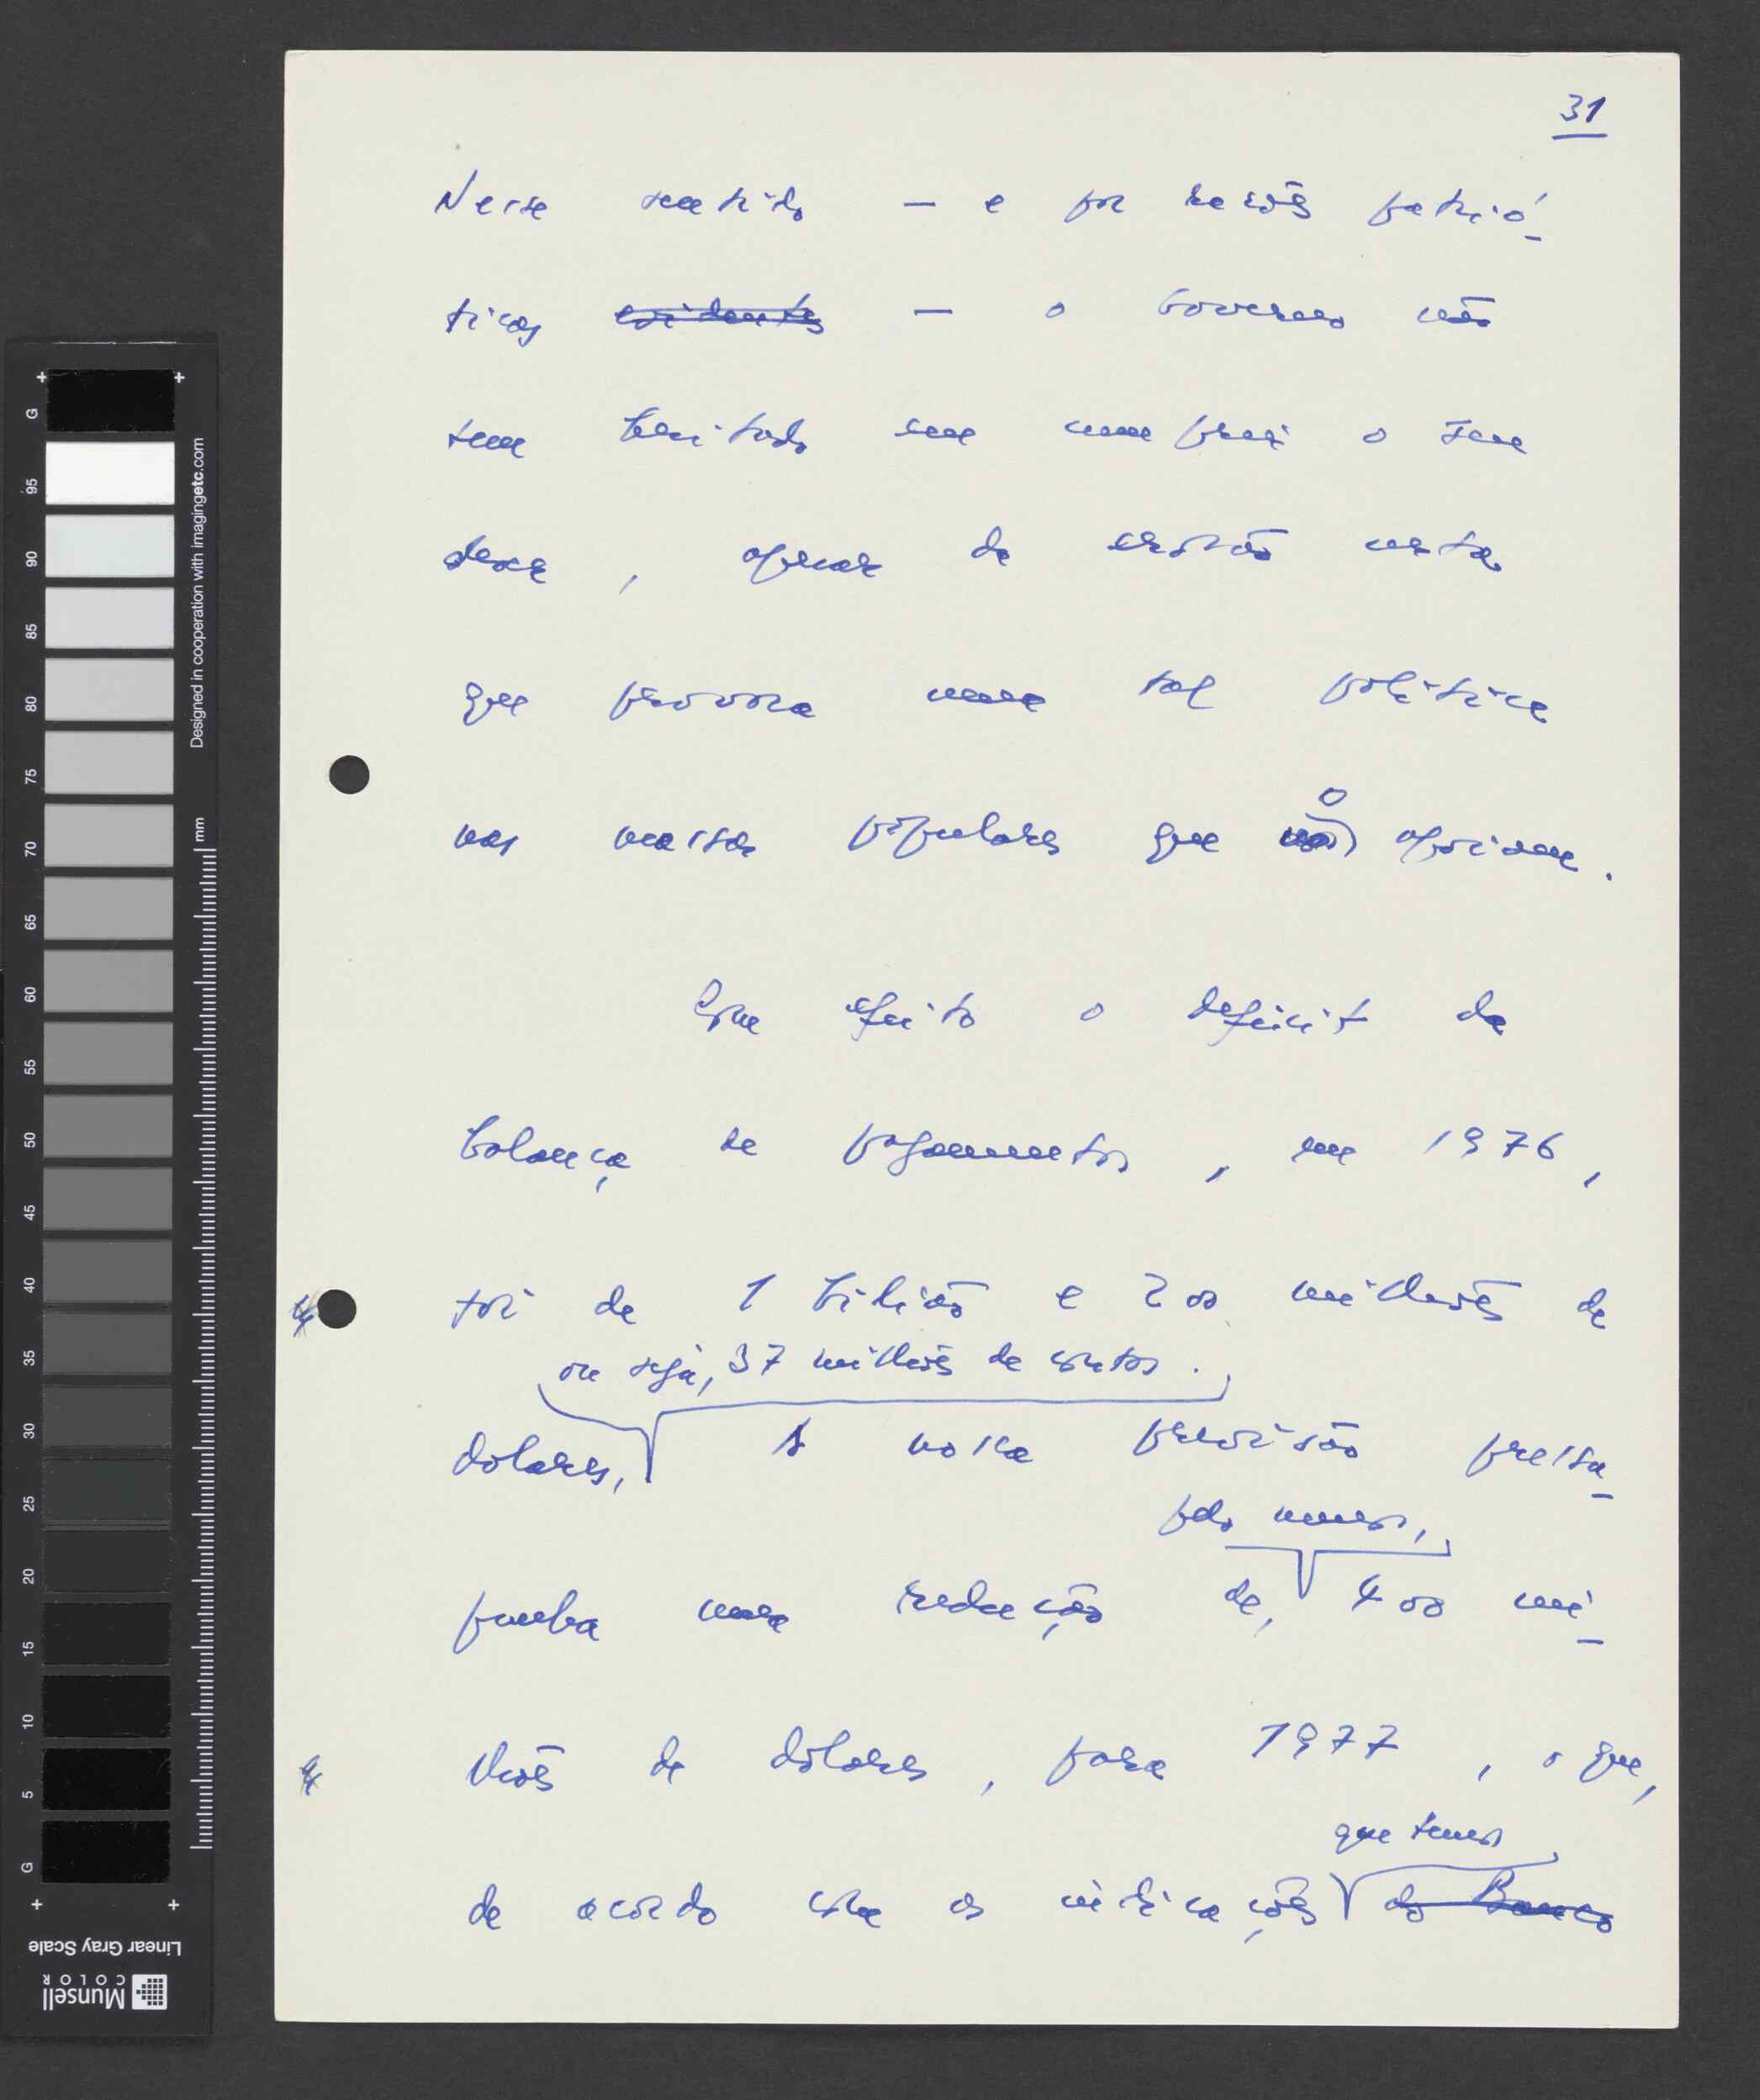 31
Nesse sentido — e por razões patrió-
ticas evidentes — o Governo não
tem hesitado em cumprir o seu
dever, apesar da erosão certa
que provoca uma tal política
nas massas populares que o apoiam.
Com efeito o deficit da
balança de pagamentos, em 1976,
foi de 1 bilião e 200 milhões de
ou seja, 37 milhões de contos.
dolares, A nossa previsão pressu-
pelo menos,
punha uma redução de, 400 mi-
lhões de dólares, para 1977, o que,
que temos
de acordo com as indicações do Banco
G 95 90 85 80 75 70 65 60 55 50 45 40 35 30 25 20 15 10 5 G
mm
Designed in cooperation with imagingetc.com
Munsell COLOR
Linear Gray Scale